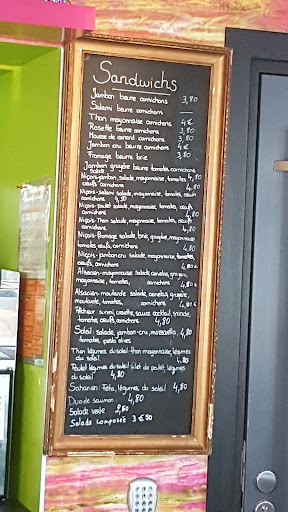 Sandwichs
Jambon beurre cornichons 3,80
Salami beurre cornichons
Thon mayonnaise cornichons 4€
Rosette beurre cornichons 3,80
Mousse de canard cornichons 3,80
Jambon cru beurre cornichons 4€
Fromage beurre brie 3,80
Jambon gruyère beurre tomates cornichons
salade 4,80
Niçois-jambon, salade, mayonnaise, tomates,
œufs, cornichons 4,80
Niçois-salami salade, mayonnaise, tomates, œufs
cornichons 4,80
Niçois-poulet salade, mayonnaise, tomates,
œufs cornichons 4,80
Niçois-Thon salade, mayonnaise, tomates, œufs
cornichons 4,80
Niçois-fromage salade, brie, gruyère, mayonnaise
tomates œufs, cornichons 4,80
Niçois-jambon cru salade, mayonnaise, tomates,
œufs, cornichons 4,80
Alsacien-mayonnaise salade, cervelas, gruyère,
mayonnaise, tomates, cornichons 4,80€
Alsacien-moutarde salade, cervelas, gruyère,
moutarde, tomates, cornichons 4,80€
Pêcheur surimi, crevette, sauce cocktail, salade,
tomates, œufs, cornichons 4,80
Soleil: salade, jambon-cru, mozzarella,
tomates, pesto olives 4,80
Thon légumes du soleil: thon mayonnaise, légumes
du soleil 4,80
Poulet légumes du soleil: filet de poulet, légumes
du soleil 4,80
Saharien: Féta, légumes du soleil 4,80
Duo de saumon 4,80
Salade verte 2,80
Salade composée 3€50